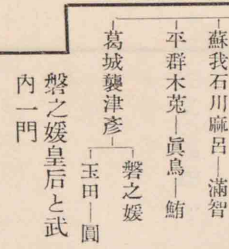 蘇我石川麻呂―滿智
平群木菟―眞鳥―鮪
葛城襲津彥
磐之媛
玉田―圓
磐之媛皇后と武
內一門